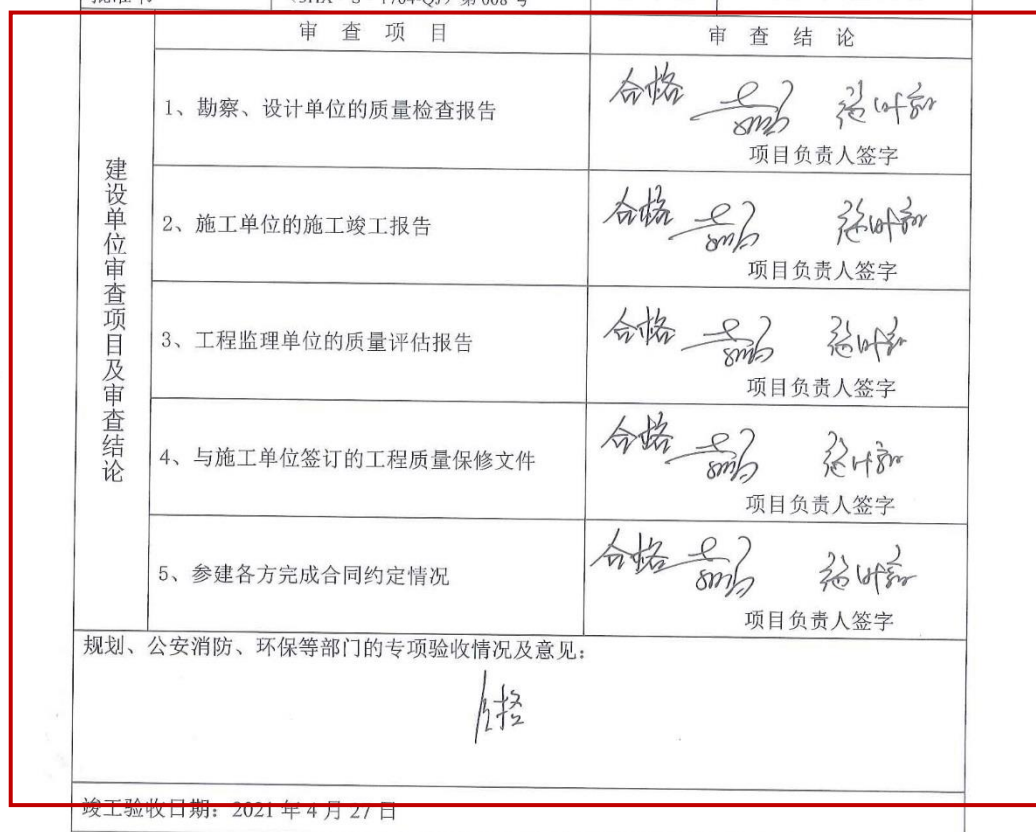 第 008 号
审 查 项 目
审 查 结 论
建设单位审查项目及审查结论
1、勘察、设计单位的质量检查报告
合格
项目负责人签字
2、施工单位的施工竣工报告
合格
项目负责人签字
3、工程监理单位的质量评估报告
合格
项目负责人签字
4、与施工单位签订的工程质量保修文件
合格
项目负责人签字
5、参建各方完成合同约定情况
合格
项目负责人签字
规划、公安消防、环保等部门的专项验收情况及意见：
合格
竣工验收日期：2021 年 4 月 27 日